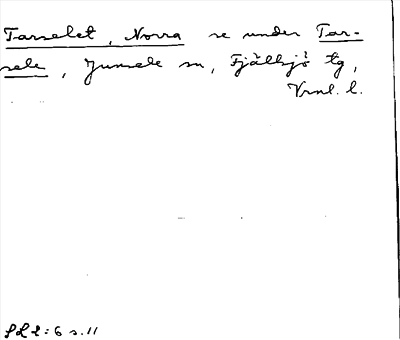 Tarselet, Norra se under Tar-
sele, Junsele sn, Fjällsjö tg,
Vrnl. l.
SL 2:6 s. 11